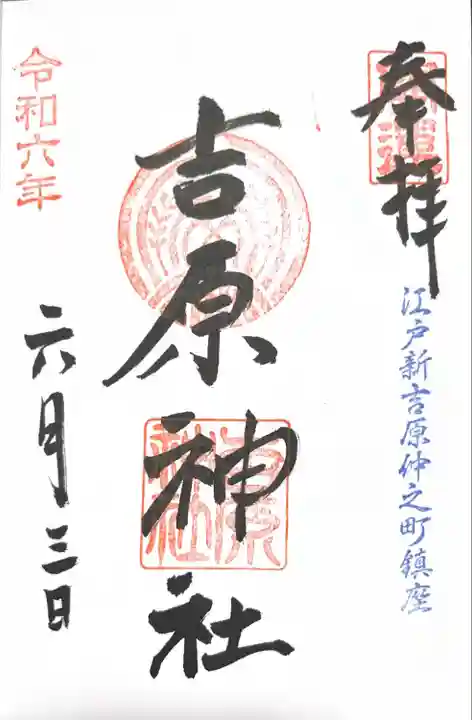 奉拝
江戸新吉原仲之町鎮座
吉原神社
令和六年
六月三日